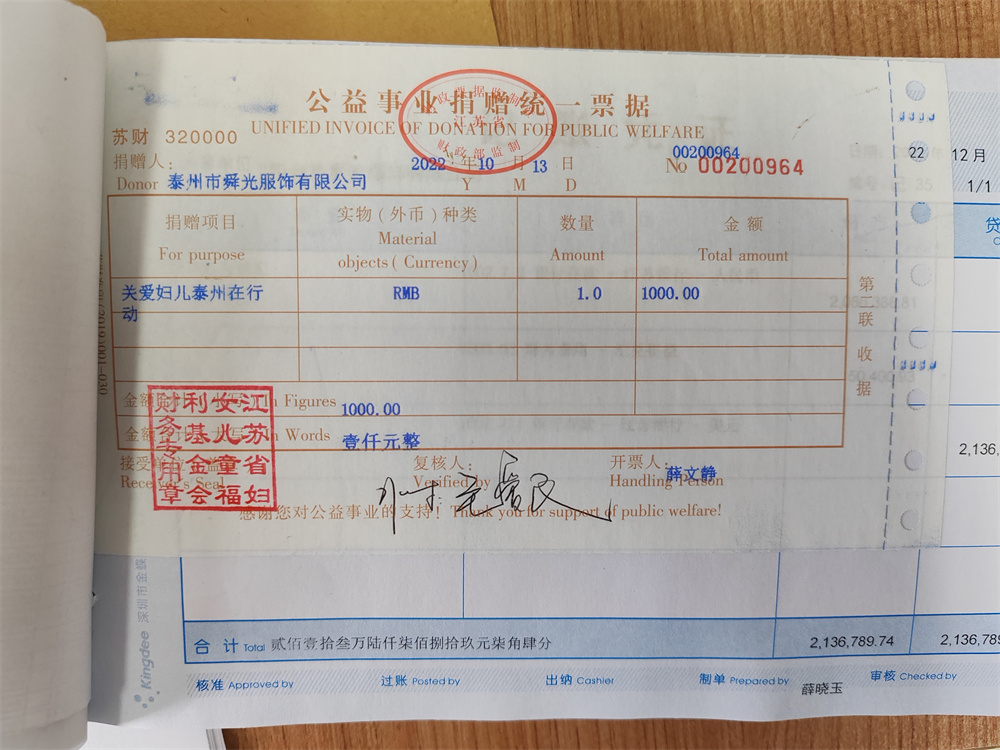 公益事业捐赠统一票据
UNIFIED INVOICE OF DONATION FOR PUBLIC WELFARE
江苏省
财政部监制
苏财 320000
捐赠人：
Donor 泰州市舜光服饰有限公司
2022 年 10 月 13 日
Y M D
00200964
No 00200964
捐赠项目
For purpose
实物（外币）种类
Material
objects（Currency）
数量
Amount
金额
Total amount
关爱妇儿泰州在行
动
RMB
1.0
1000.00
第二联 收据
In Figures 1000.00
In Words 壹仟元整
江苏省妇
女儿童福
利基金会
财务专用章
接受单位
Receiver's Seal
复核人：
Verified by
开票人：
Handling Person
薛文静
感谢您对公益事业的支持！Thank you for support of public welfare!
22
12 月
1/1
贷
2,136,
Kingdee 深圳市金蝶
合 计 Total 贰佰壹拾叁万陆仟柒佰捌拾玖元柒角肆分
2,136,789.74
2,136,789
核准 Approved by
过账 Posted by
出纳 Cashier
制单 Prepared by
薛晓玉
审核 Checked by